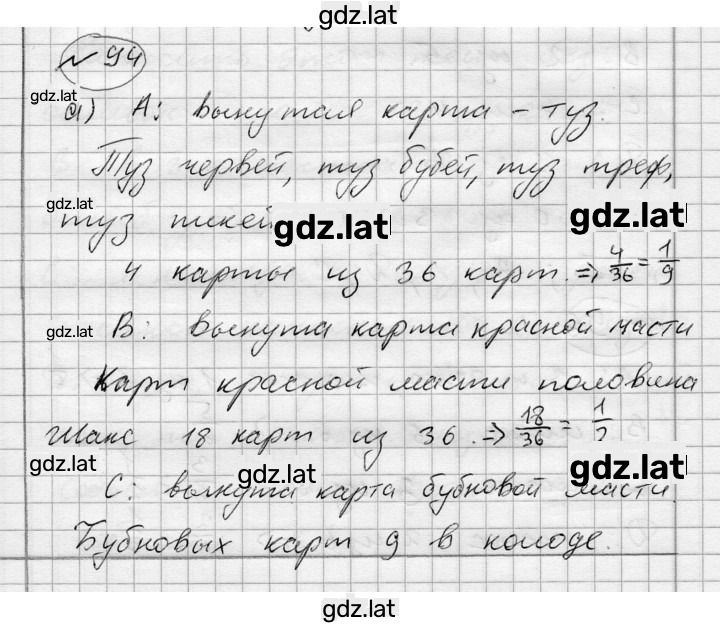 gdz.lat
№ 94
gdz.lat
а) А: вынутая карта – туз.
Туз червей, туз бубей, туз треф,
gdz.lat
туз пикей
gdz.lat
gdz.lat
4 карты из 36 карт. ⇒ 4/36 = 1/9
gdz.lat
В: вынута карта красной масти
Карт красной масти половина
Шанс 18 карт из 36. ⇒ 18/36 = 1/2
gdz.lat
gdz.lat
gdz.lat
С: вынута карта бубновой масти.
Бубновых карт 9 в колоде.
gdz.lat